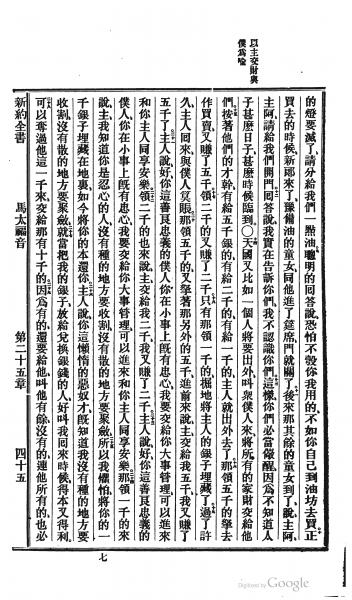 以主交財與
僕爲喻
的燈要滅了、請分給我們一點油、聰明的回答說、恐怕不彀你我用的、不如你自己到油坊去買、正
買去的時候、新郎來了、豫備油的童女、同他進了筵席、門就關了、後來那其餘的童女到了、說、主阿、
主阿、請給我們開門、回答說、我實在告訴你們、我不認識你們、這樣、你們必當儆醒、因爲不知道人
子甚麼日子、甚麼時候臨到、〇天國又比如一個人、將要出外、叫衆僕人來、將所有的家財交給他
們、按著他們的才幹、有給五千銀的、有給二千的、有給一千的、主人就出外去了、那領五千的、拏去
作買賣、又賺了五千、領二千的、又賺了二千、只有那領一千的、掘地將主人的銀子埋藏了、過了許
久、主人回來、與僕人算賬、那領五千的、又拏著那另外的五千、進前來說、主交給我五千、我又賺了
五千了、主人說、好、你這善良忠義的僕人、你在小事上旣有忠心、我要交給你大事管理、可以進來
和你主人同享安樂、領二千的也來說、主交給我二千、我又賺了二千、主人說、好、你這善良忠義的
僕人、你在小事上旣有忠心、我要交給你大事管理、可以進來和你主人同享安樂、那領一千的來
說、主、我知道你是忍心的人、沒有種的地方要收割、沒有散的地方要聚斂、所以我懼怕、將你的一
千銀子埋藏在地裏、如今將你的本還你、主人說、你這懶惰的惡奴才、旣知道我沒有種的地方要
收割、沒有散的地方要聚斂、就當把我的銀子放給兌換銀錢的人、好叫我回來時候、得本又得利、
可以奪過他這一千來、交給那有十千的、因爲有的、還要給他、叫他有餘、沒有的、連他所有的、也必
新約全書　馬太福音　第二十五章　四十五
七
Digitized by Google